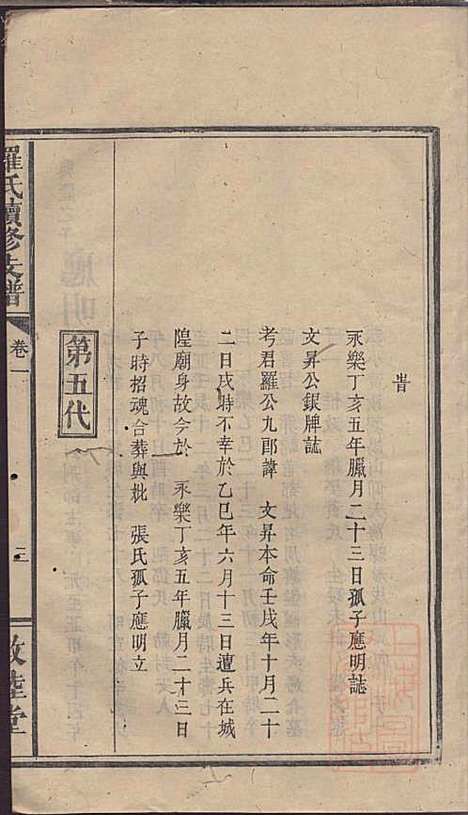 昔
永樂丁亥五年臘月二十三日孤子應明誌
文昇公銀牌誌
考君羅公九郎諱 文昇本命壬戌年十月二十
二日戌時不幸於乙巳年六月十三日遭兵在城
隍廟身故今於 永樂丁亥五年臘月二十三日
子時招魂合葬與妣 張氏孤子應明立
第五代
羅氏續修支譜
卷一
三
敦睦堂